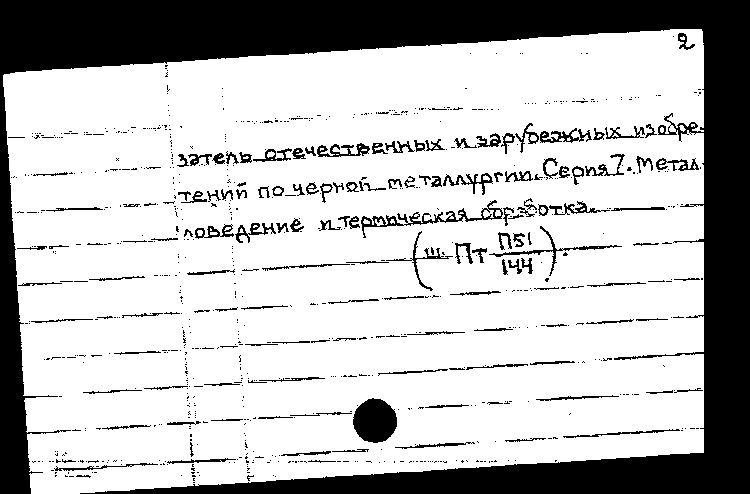 2
затель отечественных и зарубежных изобре-
тений по черной металлургии. Серия 7. Метал-
ловедение и термическая обработка.
(ш. Пт П51/144).